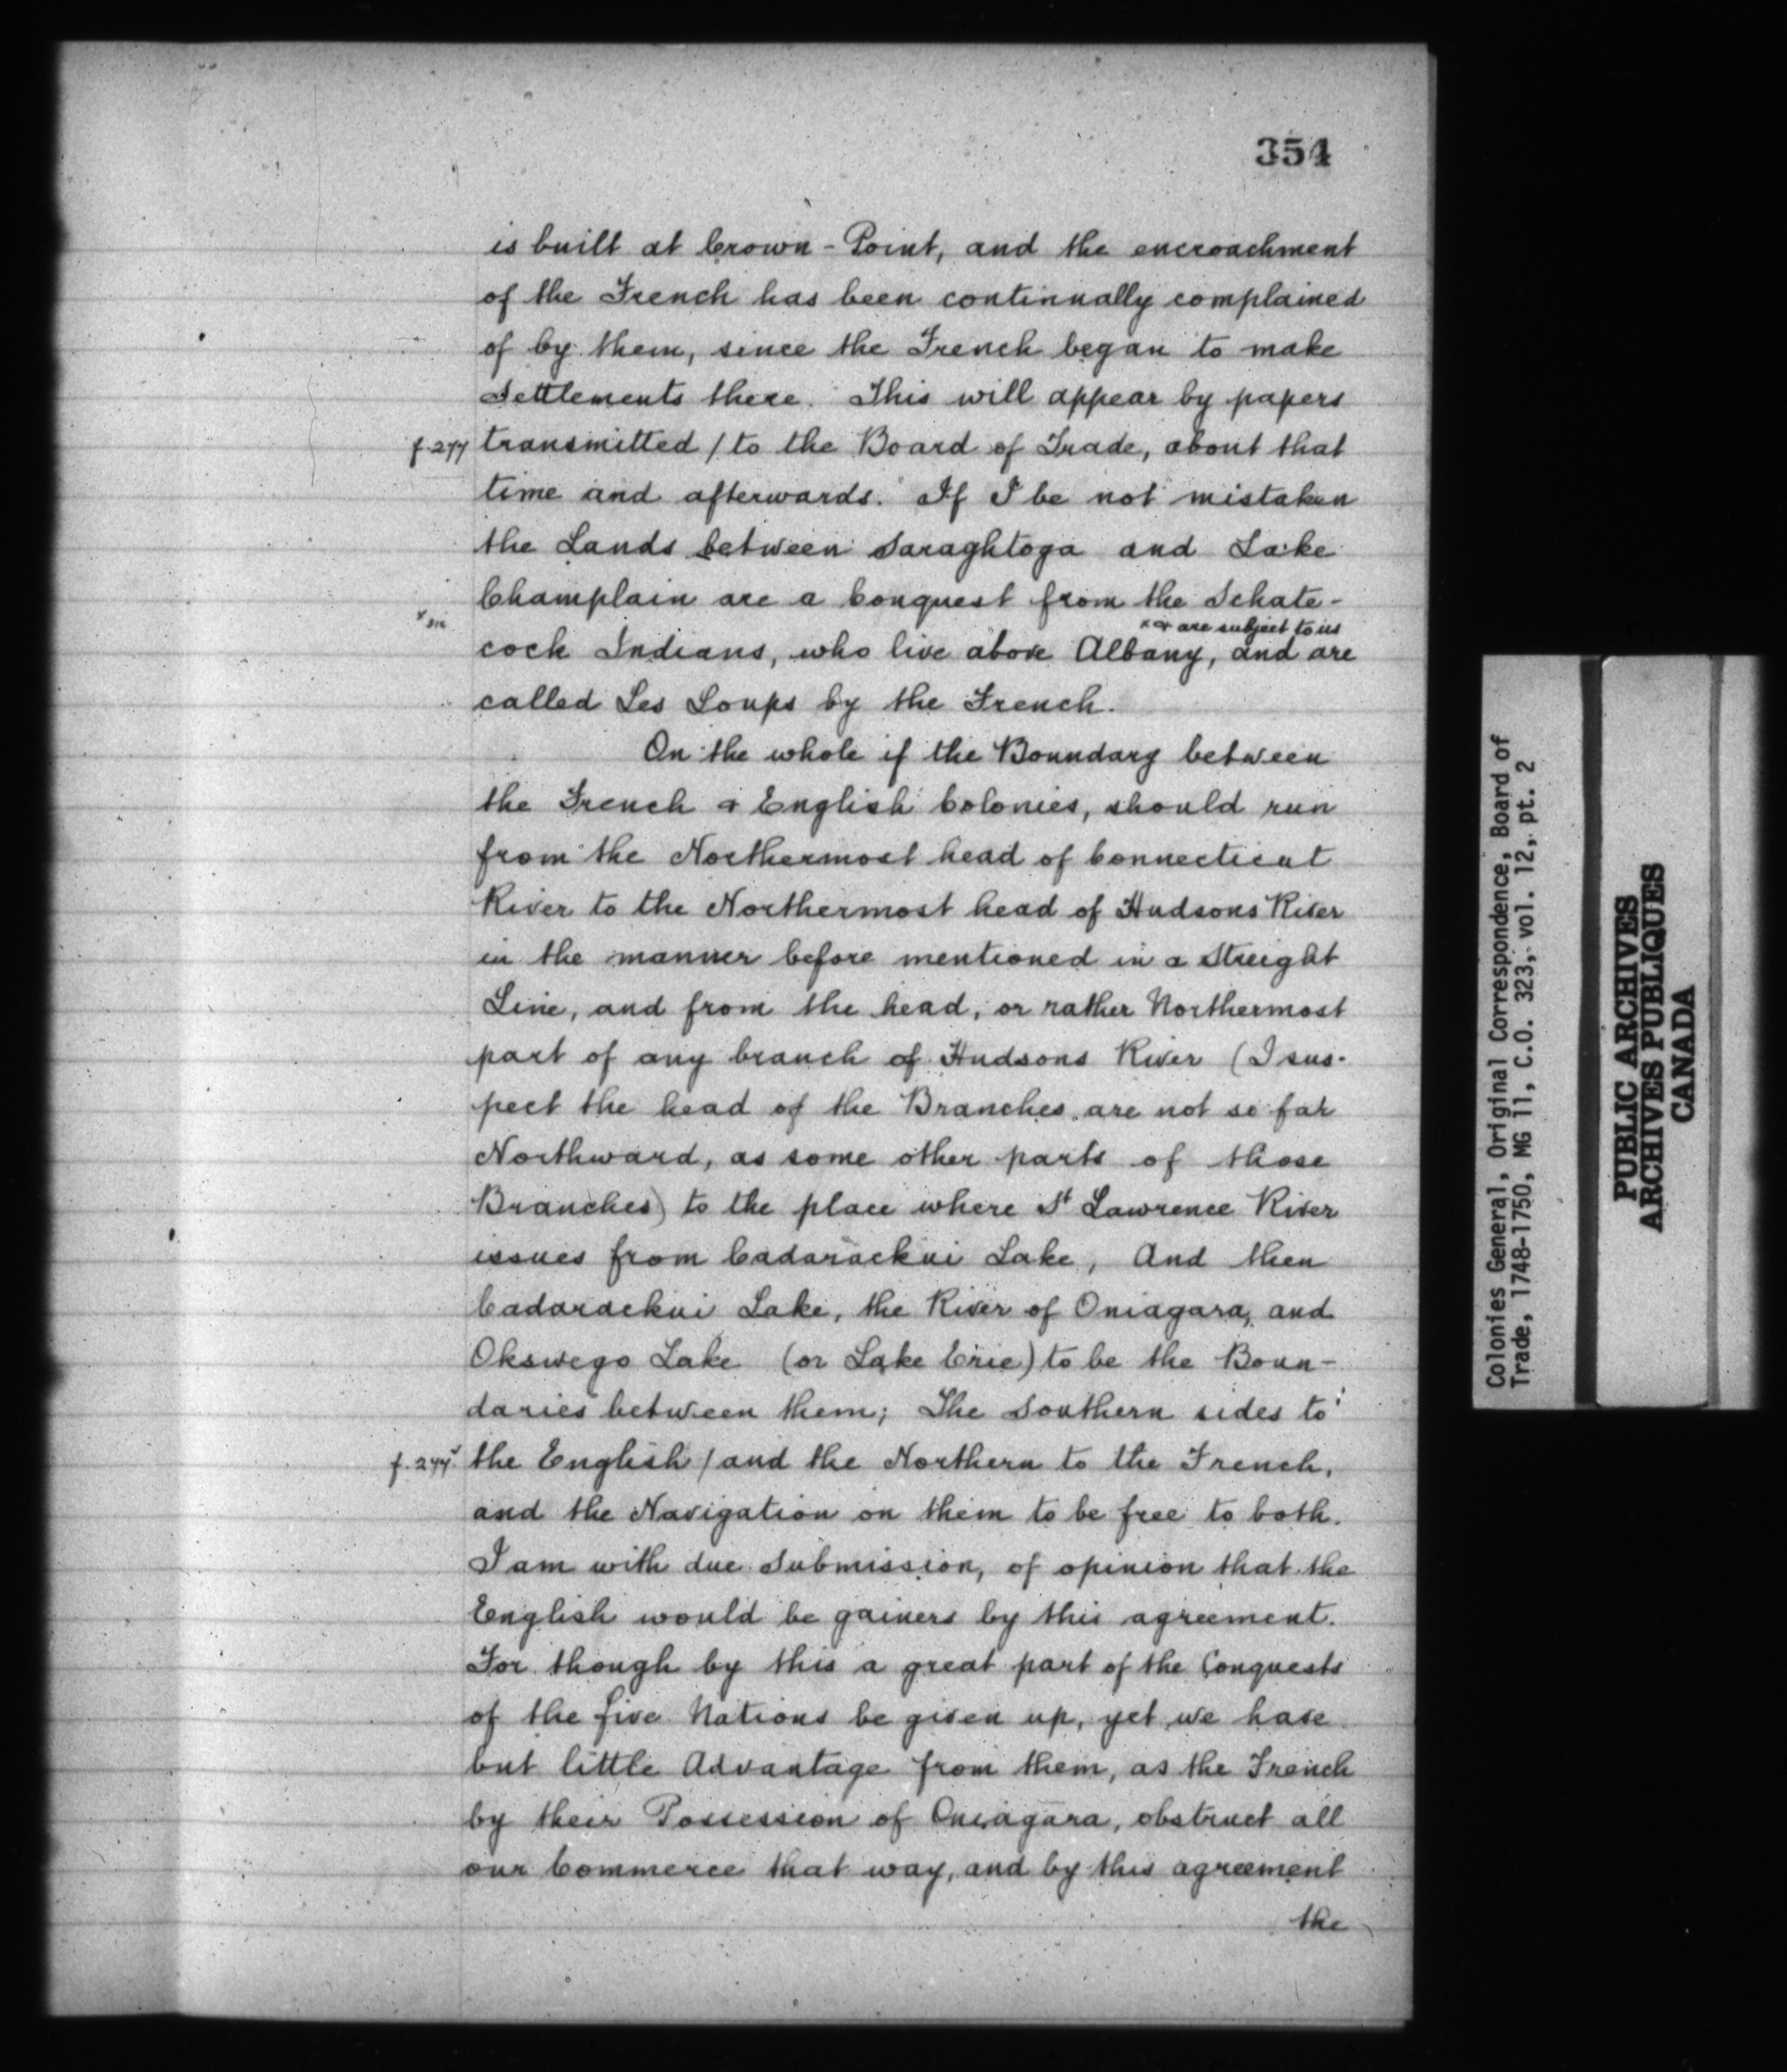 354
is built at Crown-Point, and the encroachment
of the French has been continually complained
of by them, since the French began to make
Settlements there. This will appear by papers
f.277 transmitted / to the Board of Trade, about that
time and afterwards. If I be not mistaken
the Lands between Saraghtoga and Lake
Champlain are a Conquest from the Schate-
x sic
x & are subject to us
cock Indians, who live above Albany, and are
called Les Loups by the French.
On the whole if the Boundary between
the French & English Colonies, should run
from the Northermost head of Connecticut
River to the Northermost head of Hudsons River
in the manner before mentioned in a Streight
Line, and from the head, or rather Northermost
part of any branch of Hudsons River (I sus-
pect the head of the Branches are not so far
Northward, as some other parts of those
Branches) to the place where St Lawrence River
issues from Cadarackui Lake, And then
Cadarackui Lake, the River of Oniagara, and
Okswego Lake (or Lake Erie) to be the Boun-
daries between them; The Southern sides to
f.277v the English / and the Northern to the French,
and the Navigation on them to be free to both.
I am with due Submission, of opinion that the
English would be gainers by this agreement.
For though by this a great part of the Conquests
of the five Nations be given up, yet we have
but little Advantage from them, as the French
by their Possession of Oniagara, obstruct all
our Commerce that way, and by this agreement
the
Colonies General, Original Correspondence, Board of
Trade, 1748-1750, MG 11, C.O. 323, vol. 12, pt. 2
PUBLIC ARCHIVES
ARCHIVES PUBLIQUES
CANADA